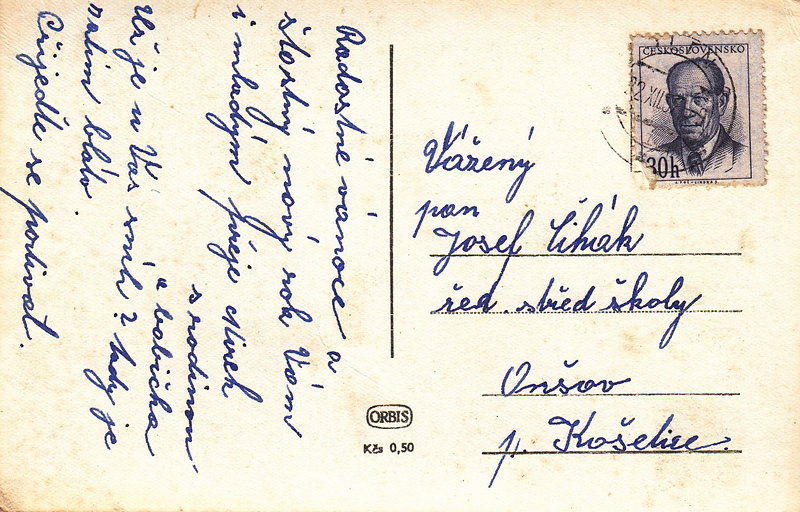 Radostné vánoce a
šťastný nový rok Vám
i mladým přeje Mirek
s rodinou
a babička
Už je u Vás sníh? tady je
zatím bláto.
Přijeďte se podívat.
ČESKOSLOVENSKO
XII.
30h
Vážený
pan
Josef Čihák
řed. střed školy
Onšov
p. Košetice.
ORBIS
Kčs 0,50